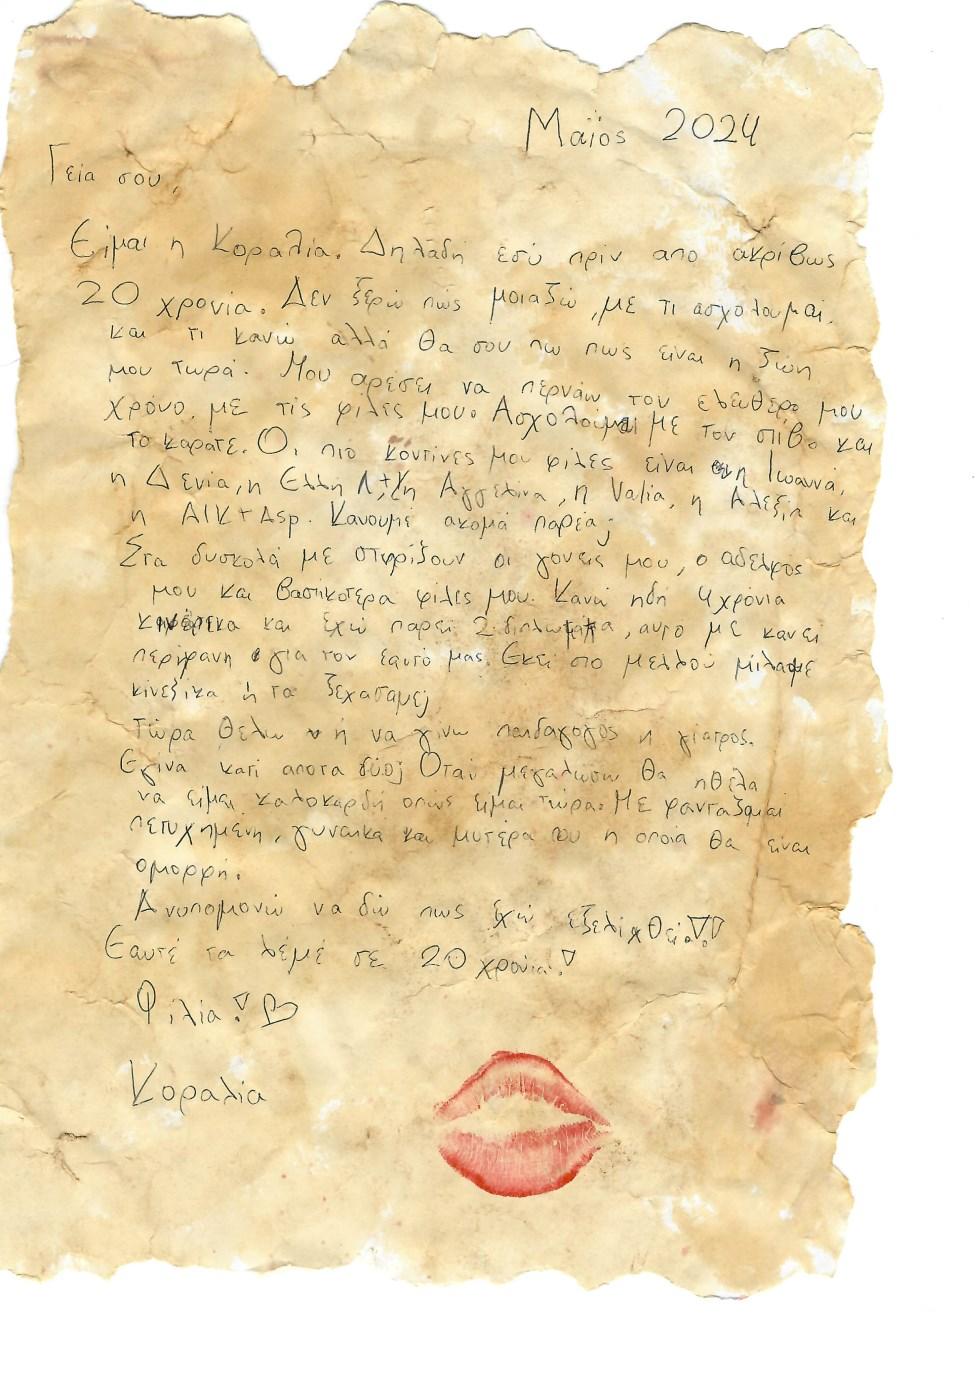 Μαϊος 2024
Γεία σου,
Είμαι η Κοραλία. Δηλάδη εσύ πρίν απο ακρίβως
20 χρονία. Δεν ξερώ πώς μοιαζώ, με τι ασχολουμαι.
και τι κανώ αλλά θα σου πω πως είναι η ζώη
μου τωρά. Μου αρέσει να περνάω τον ελευθέρο μου
χρόνο. με τις φίλες μου. Ασχολούμαι με τον στίβο και
το καράτε. Οι πιο κοντίνες μου φίλες είναι η Ιωαννά,
η Δενία, η Ελλη Λ+Χ, η Αγγελίνα, η Valia, η Αλεξία και
η ΑΙΚ+Asp. Κανουμε ακομά παρέα;
Στα δυσκολά με στηρίζουν οι γονείς μου, ο αδελφος
μου και βασικοτερα φίλες μου. Κανω ηδη 4 χρόνια
κινέζικα και έχω παρεί 2 διπλωματα, αυτο με κανει
περιφανη για τον εαυτό μας. Εκεί στο μελλού μίλαμε
κίνεζικα ή τα ξεχασαμε;
Τώρα θέλω ή να γίνω παιδαγογος η γίατρος.
Εγίνα κατί αποτα δύο; Οταν μεγαλωσω θα ηθέλα
να είμαι καλοκαρδη οπώς είμαι τώρα. Με φανταζομαι
πετυχημένη, γυναικα και μυτέρα του η οποία θα είναι
ομορφη.
Ανυπομονώ να δώ πως έχω εξελιχθεί!!
Εαυτέ τα λέμε σε 20 χρονια!
Φιλία! ♡
Κοραλία